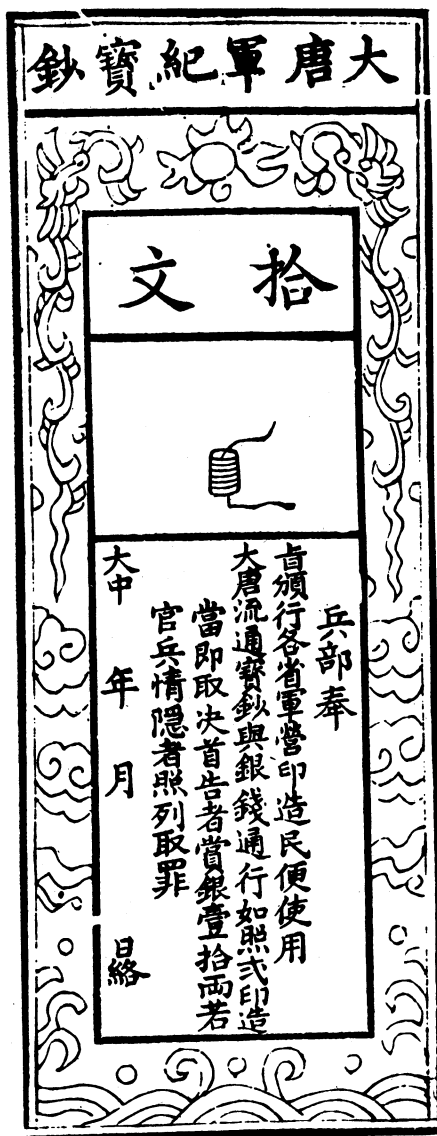 大唐軍紀寳鈔
拾文
兵部奉
旨頒行各省軍營印造民便使用
大唐流通寳鈔與銀錢通行如照式印造
當即取决首告者賞銀壹拾両若
官兵情隠者照列取罪
大中 年 月 日絡